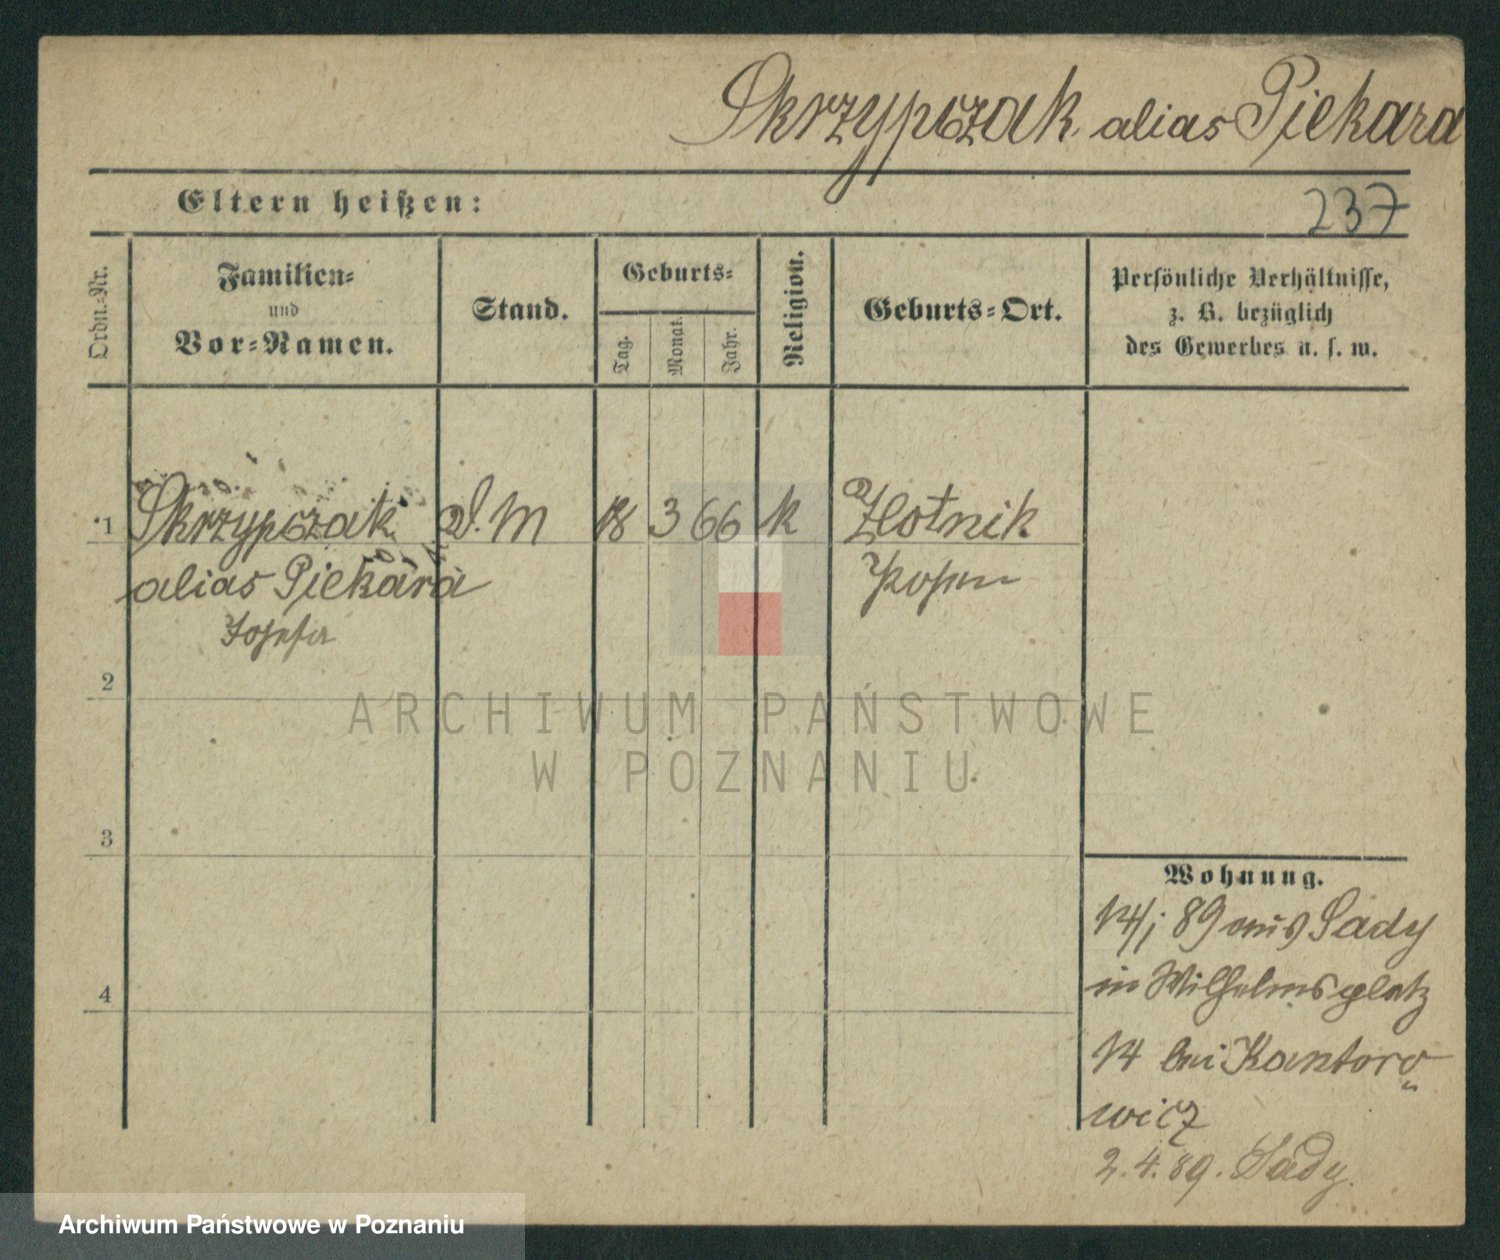 Skrzypczak alias Piekara
Eltern heißen:
237
Ordn.-Nr.
Familien-
und
Vor-Namen.
Stand.
Geburts-
Tag.
Monat.
Jahr.
Religion.
Geburts-Ort.
Persönliche Verhältnisse,
z. B. bezüglich
des Gewerbes u. s. w.
1 Skrzypczak D. M 18 3 66 k Zlotnik
alias Piekara Posen
Josefa
2
3
4
Wohnung.
14/1 89 aus Sady
in Wilhelmsplatz
14 bei Kantoro-
wicz
2.4.89. Sady.
ARCHIWUM PAŃSTWOWE
W POZNANIU
Archiwum Państwowe w Poznaniu